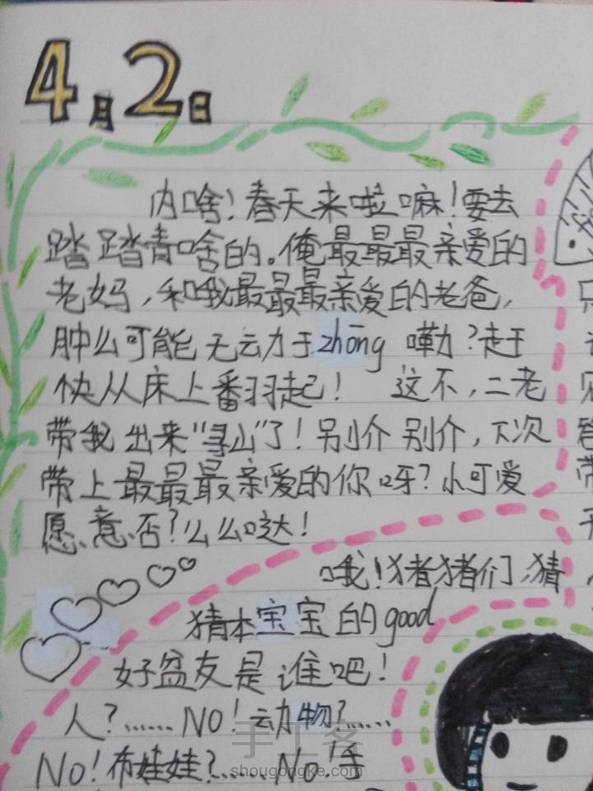 4月2日
内啥！春天来啦嘛！要去
踏踏青啥的。俺最最最亲爱的
老妈，和哦最最最亲爱的老爸，
肿么可能无云力于zhōng嘞？赶
快从床上翻起！ 这不，二老
带我出来“寻山”了！别介别介，下次
带上最最最亲爱的你呀？小可爱
愿意否？么么哒！
哦！猪猪们，猜
猜本宝宝的good
好盆友是谁吧！
人？……NO！动物？……
NO！布娃娃？……NO！
shougongke.com